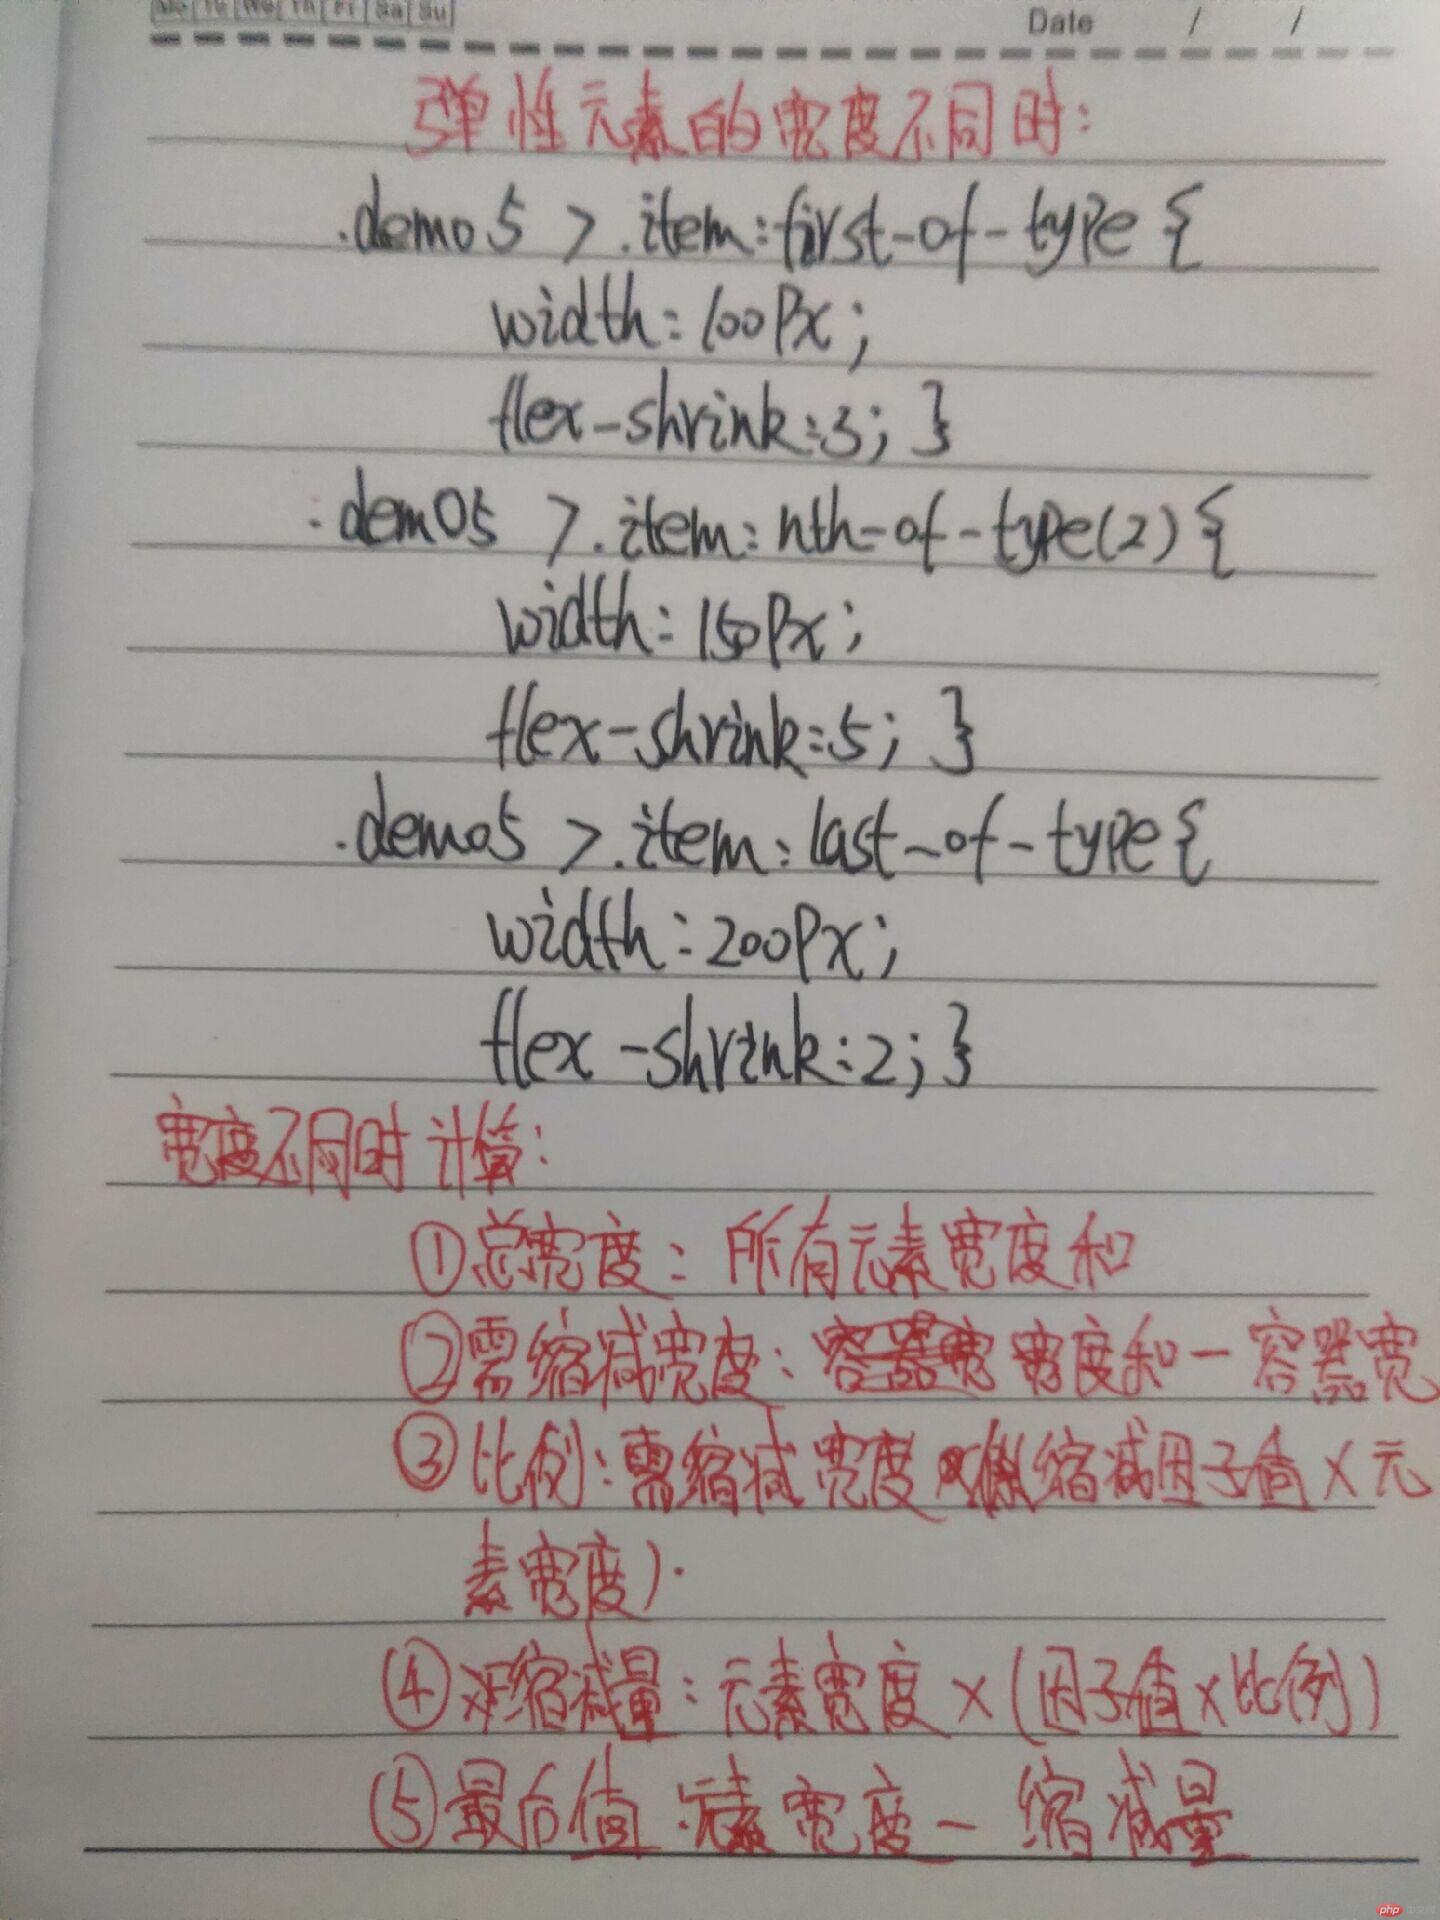 Mo Tu We Th Fr Sa Su
Date / /
弹性元素的宽度不同时:
.demo5 > .item:first-of-type {
width:100px;
flex-shrink:3; }
.demo5 > .item:nth-of-type(2) {
width:150px;
flex-shrink:5; }
.demo5 > .item:last-of-type {
width:200px;
flex-shrink:2; }
宽度不同时计算:
①总宽度:所有元素宽度和
②需缩减宽度: 宽度和-容器宽
③比例:需缩减宽度 缩减因子值×元
素宽度).
④ 缩减量:元素宽度×(因子值×比例)
⑤最后值:元素宽度-缩减量
php 中文网